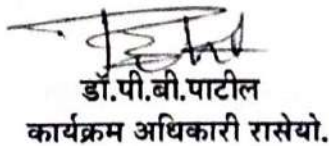 डॉ.पी.बी.पाटील
कार्यक्रम अधिकारी रासेयो.